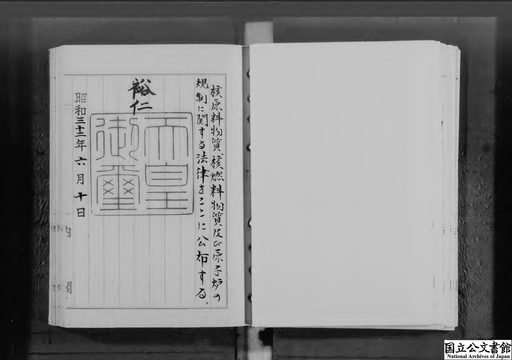 核原料物質、核燃料物質及び原子炉の
規制に関する法律をここに公布する。
裕仁
天皇
御璽
昭和三十二年六月十日
内閣
国立公文書館
National Archives of Japan